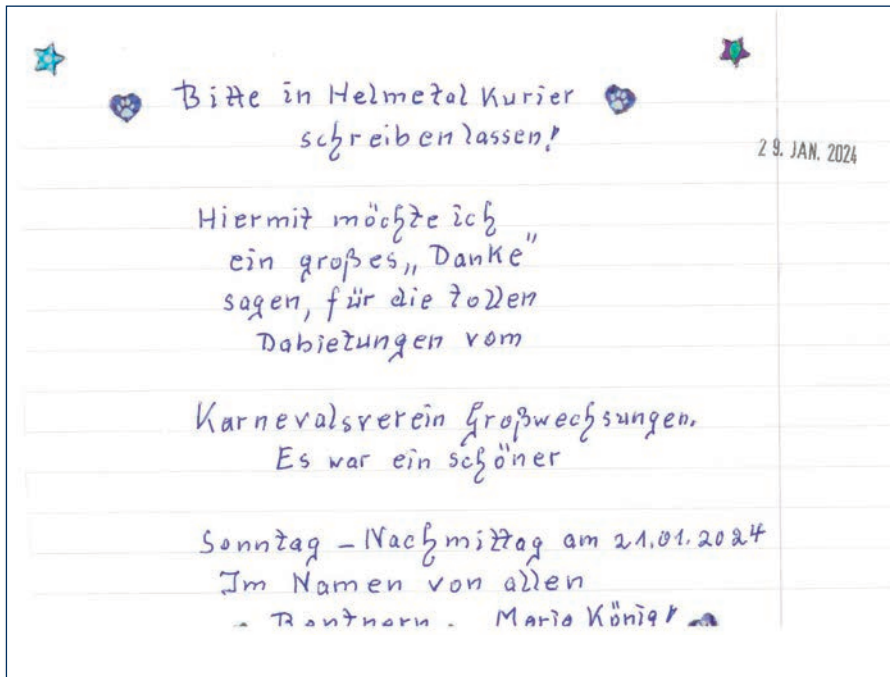 Bitte in Helmetal Kurier
schreiben lassen!
29. JAN. 2024
Hiermit möchte ich
ein großes „Danke"
sagen, für die tollen
Dabietungen vom
Karnevalsverein Großwechsungen.
Es war ein schöner
Sonntag - Nachmittag am 21.01.2024
Im Namen von allen
Rentnern. Maria König!